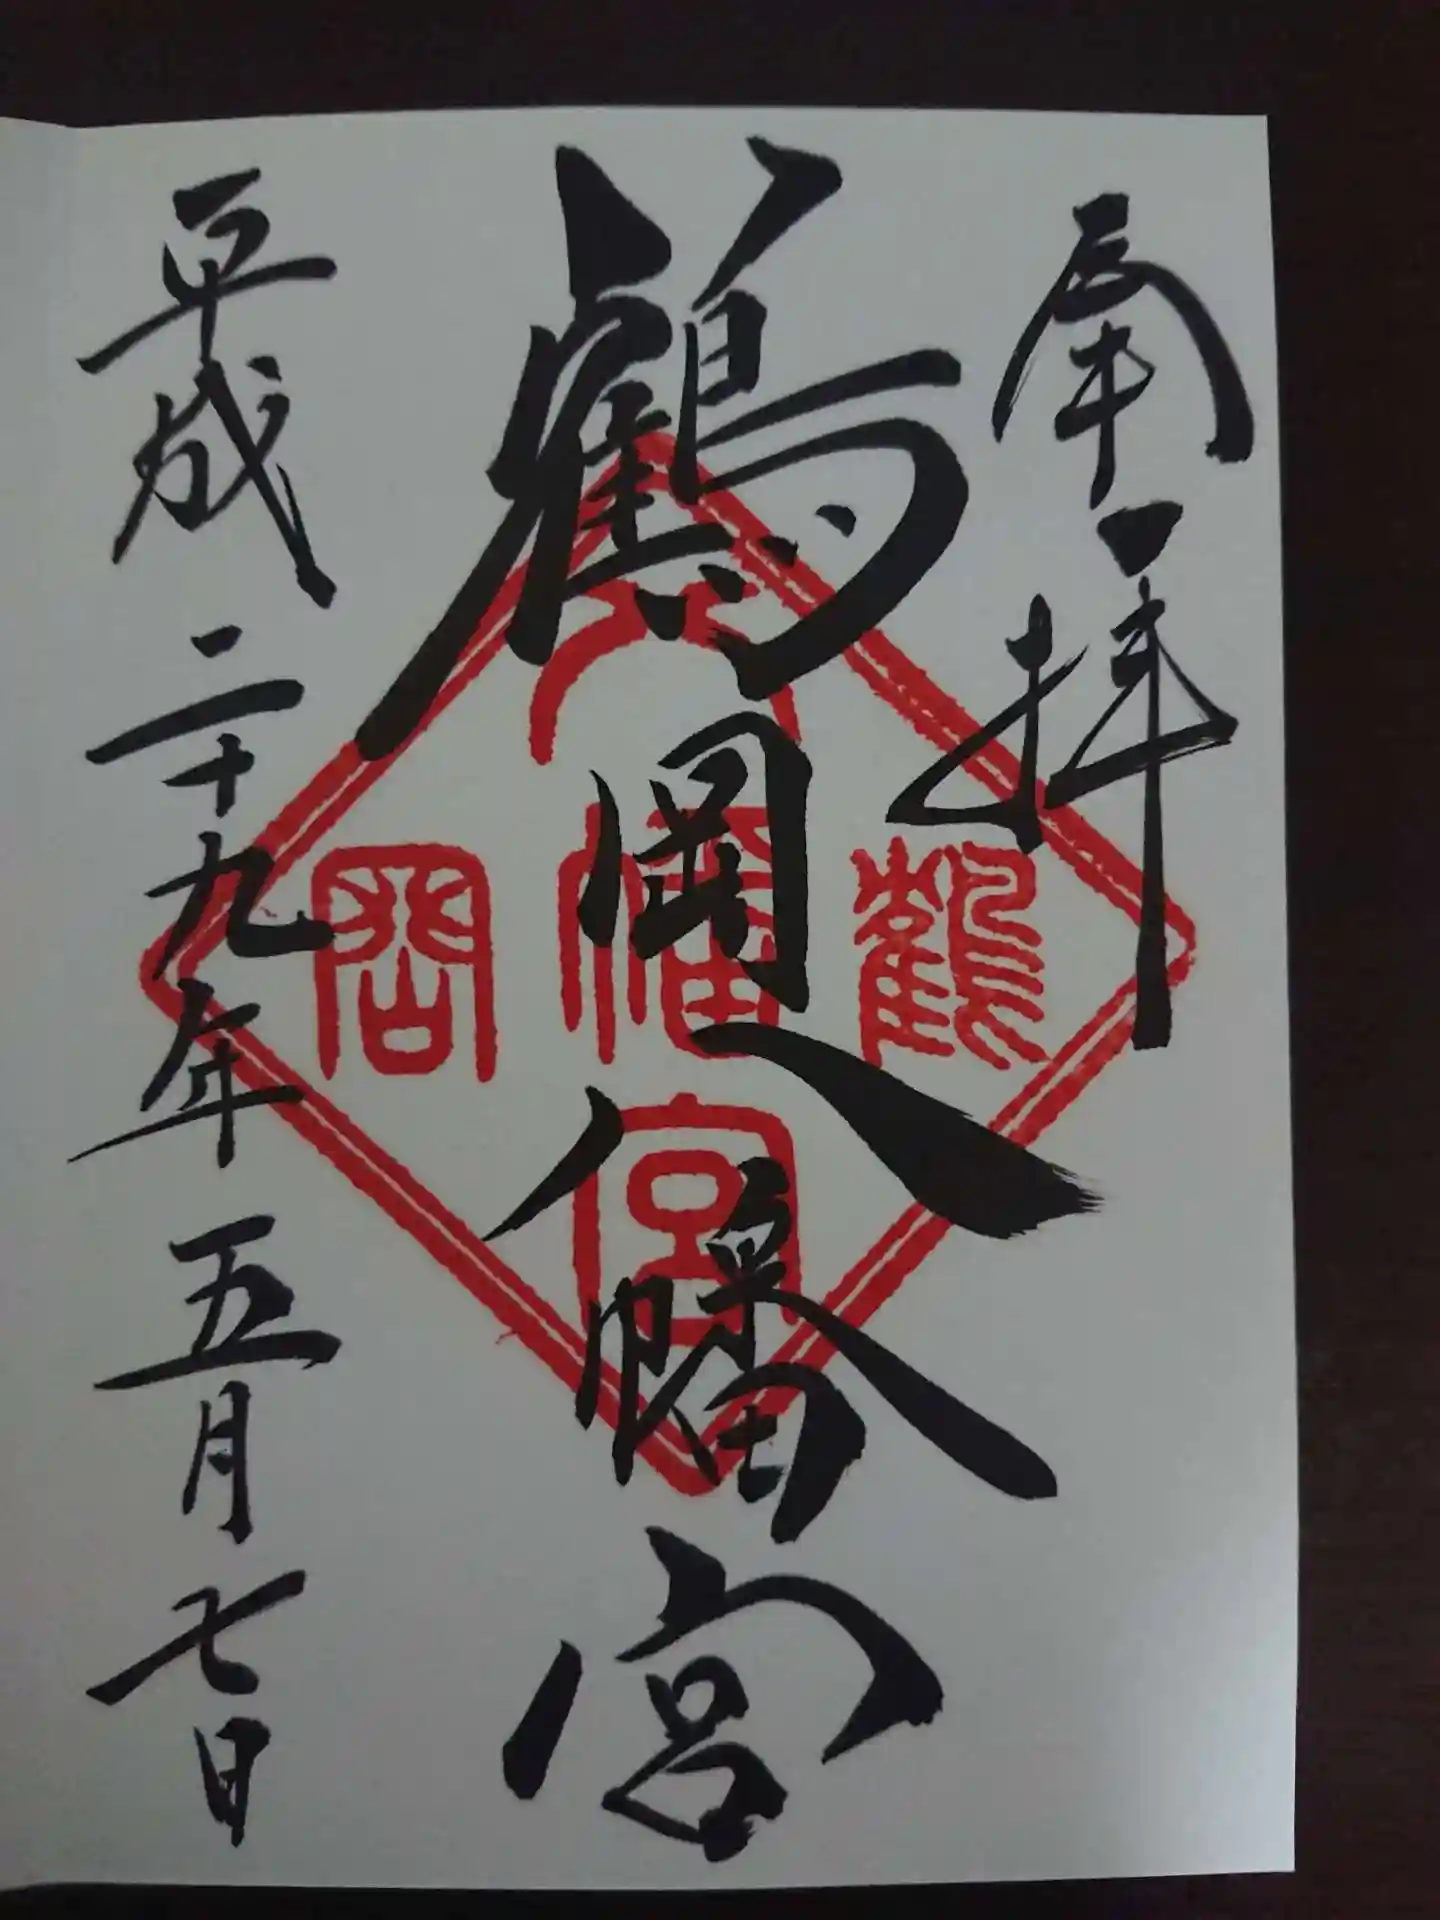 奉拝
鶴岡八幡宮
平成二十九年五月七日
八
鶴
幡
岡
宮